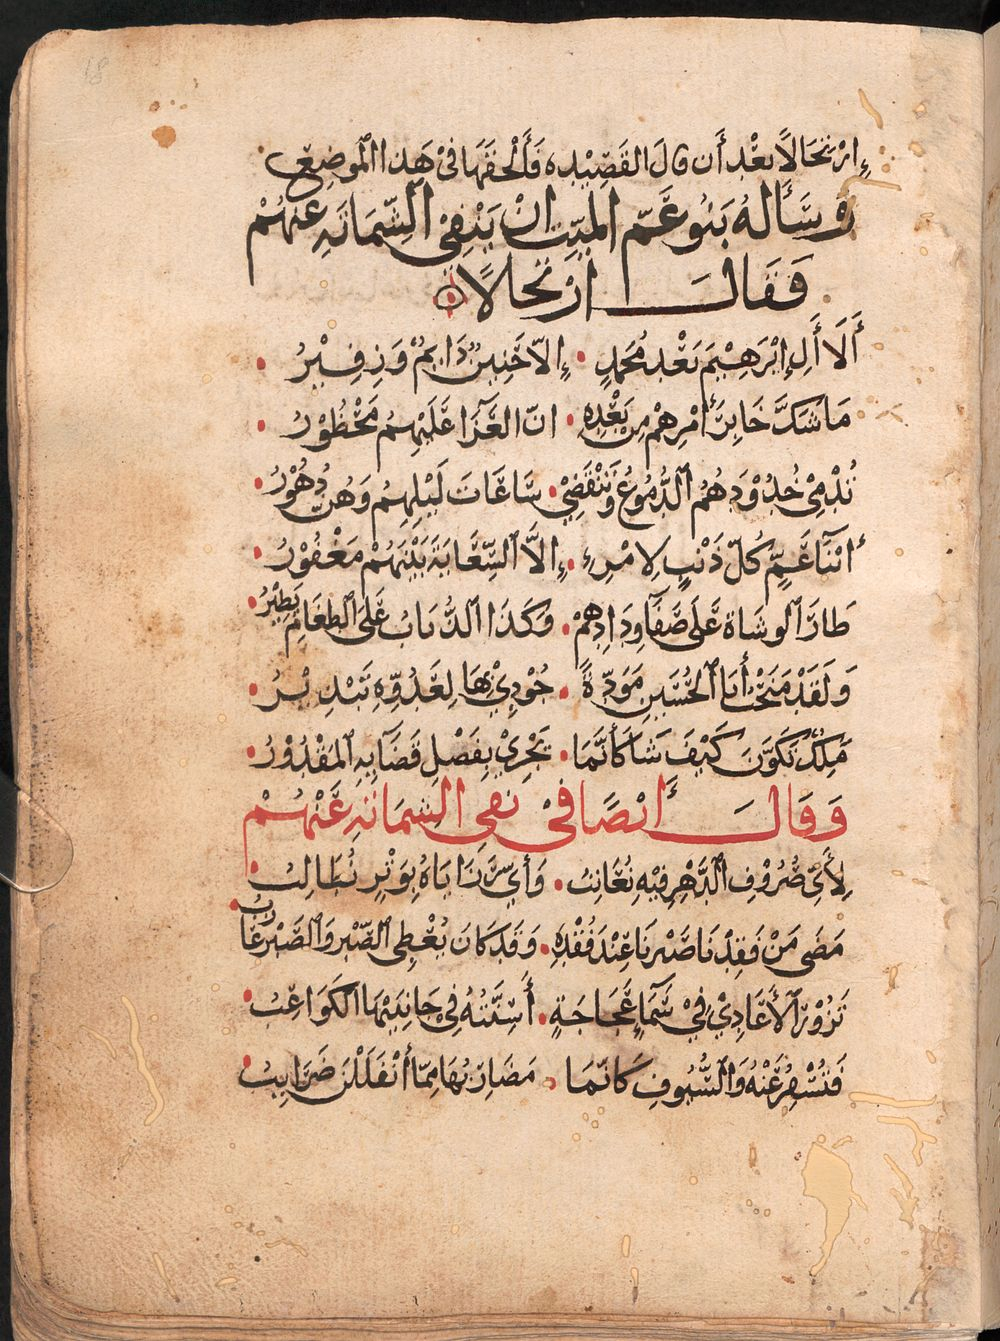 18
إرْتجَالاً بعْد أَن قالَ القَصِيْده فأَلْحقَهَا فىْ هَذا الموضِعِ
وَسَأَلهُ بَنُو عَمّ الميّتِ انْ يَنْفِىْ الشِّمَاتَه عنهُمْ
فَقَالَ ارْتجالاً
أَلَا أَلِ إبْرَهِيْمَ بَعْد مُحَمدٍ • إلاّ حَنِينٌ دَايمٌ وَزفِيْرُ •
مَا شَكَّ خَابرُ أَمْرِهمْ مِن بَعْدِهِ • انّ العَزَآ عَلَيْهِمُ مَحْظُوْرُ •
تُدْمِىْ خُدُوْدَهُمُ الدُّمُوعُ وَتَنْقَضِىْ • سَاعَاتُ لَيْلِهِمُ وَهُنّ دُهُوْرُ •
أَبْنَآءَ عَمٍّ كُلّ ذَنْبٍ لاِمْرِءٍ • إلاَّ السِّعَايَةَ بَيْنَهُمْ مَغْفُوْرُ •
طَارَ الوشَاة عَلَى صَفَآ ودَادِهِمْ • وكَذَا الذّبَابُ عَلَى الطعَامِ يَطِيْرُ •
وَلَقَدْ مَنَحْتُ أبَا الحُسَيْنِ مَودّةً • جُوْدِىْ بهَا لِعَدُوّهِ تَبْذِيْرُ •
مَلِكٌ تَكَوَّنَ كَيْفَ شَآ كَأَنّمَا • يَجْرِىْ بِفَصْلِ قَضَآيهِ المَقْدُوْرُ •
وَقَالَ أيْضًا فىْ نفىِ الشِمَاتَهِ عَنْهُمْ
لأَىِّ صُرُوْفِ الدَّهْرِ فِيْهِ نُعَاتِبُ • وَأىّ رَزَايَاهُ بِوَتْرٍ نُطَالِبُ •
مَضَى مَنْ فَقدْنَا صَبْرنَا عِنْدَ فَقْدِهِ • وَقد كَانَ يُعْطِى الصّبْر وَالصّبْر عَازِبُ •
يَزُوْرُ الأَعَادِىْ فِىْ سَمَآءِ عَجَاجَةٍ • أَسِنَّتُهُ فِى جَانِبَيْهَا الكَوَاكِبُ •
فَتُسْفِرُ عَنْهُ وَالسُّيُوفُ كَانّمَا • مَضَارِبُهَا مِمّا أنْفَلَلْنَ ضَرَايِبُ •